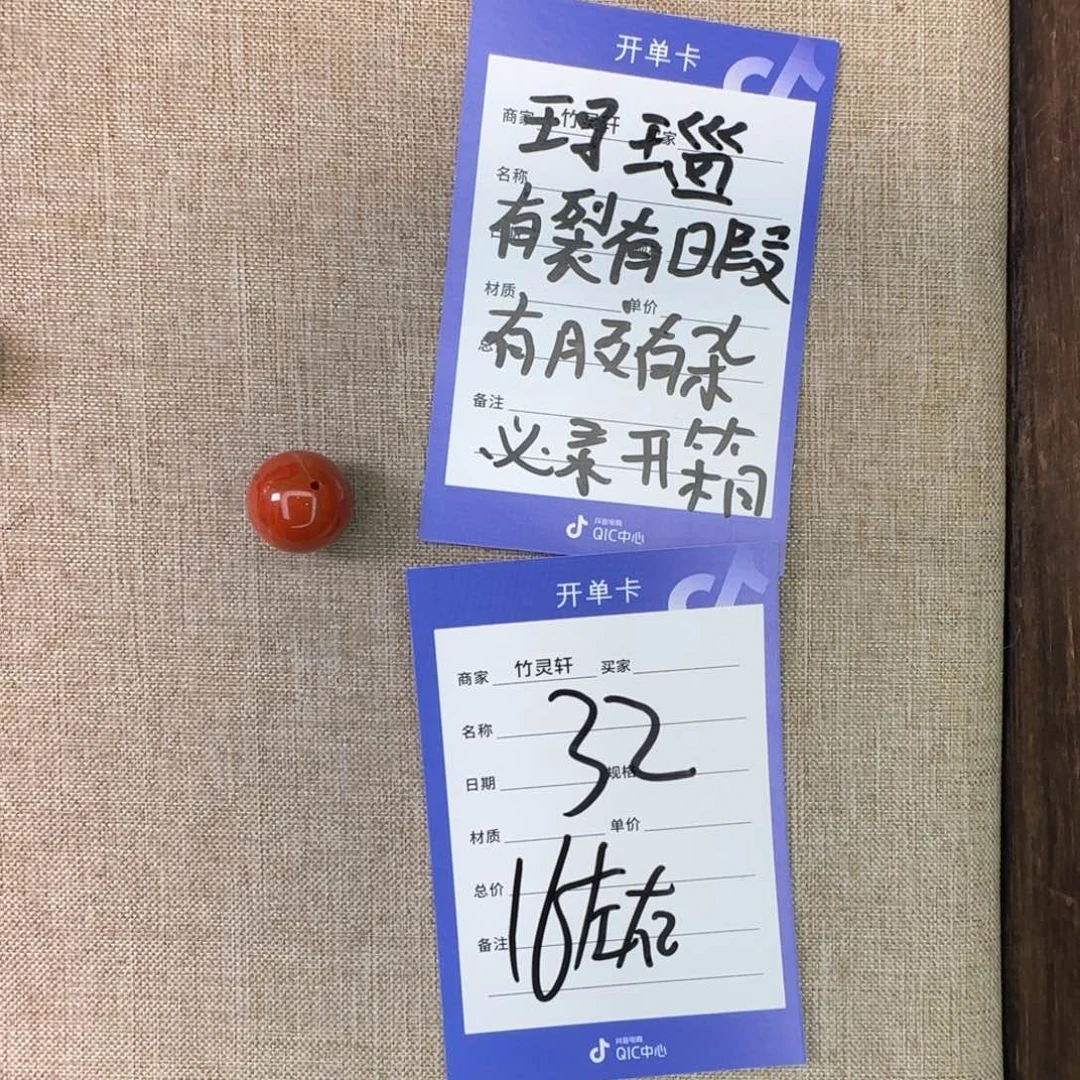 开单卡
商家 竹灵轩
玛瑙
名称
有裂有暇
材质 单价
有胶有杂
备注
必录开箱
抖音电商
QIC中心
开单卡
商家 竹灵轩 买家
名称
32
日期 规格
材质 单价
总价
16左右
备注
抖音电商
QIC中心